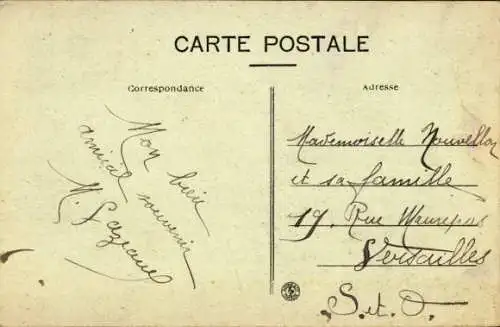 CARTE POSTALE
Correspondance
Adresse
Mon bien
amical souvenir
M.
Mademoiselle Nouvellon
et sa famille
19, Rue Maurepas
Versailles
S. et O.